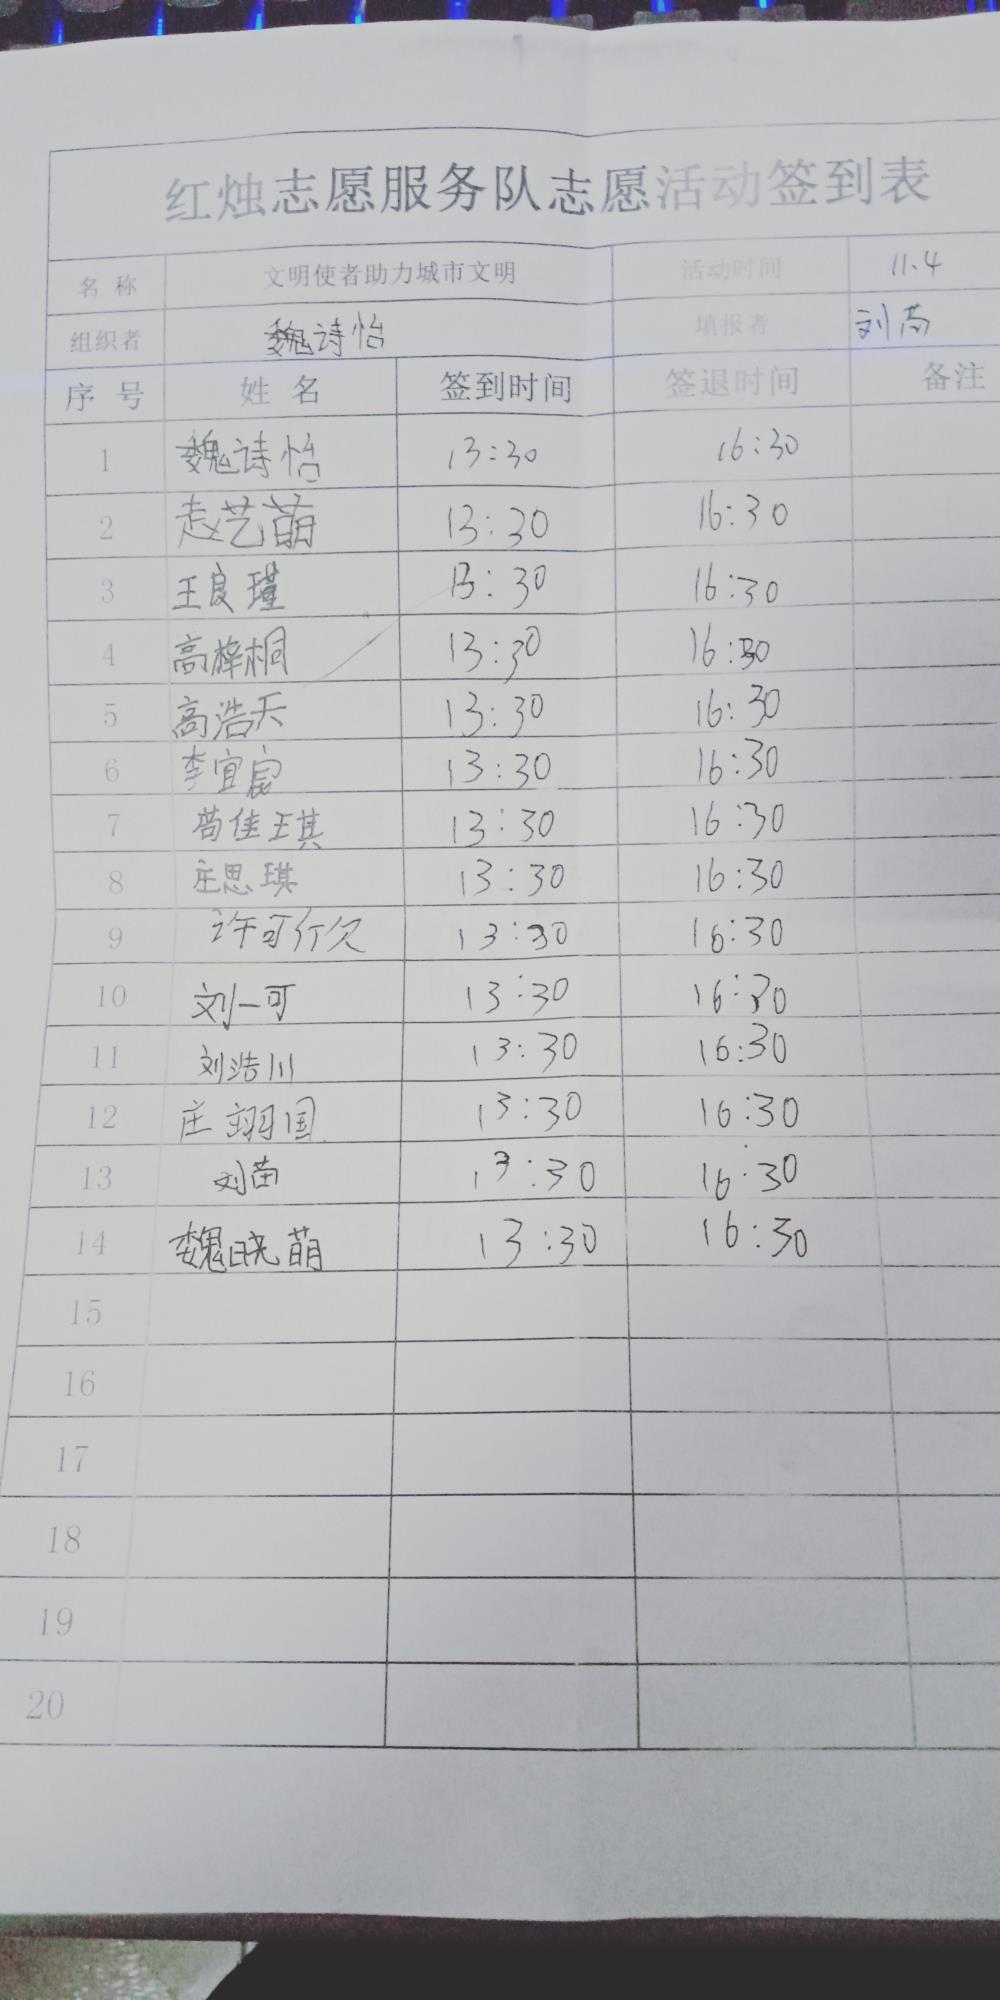 红烛志愿服务队志愿活动签到表
名称 文明使者助力城市文明 活动时间 11.4
组织者 魏诗怡 填报者 刘苗
序号 姓名 签到时间 签退时间 备注
1 魏诗怡 13:30 16:30
2 赵艺萌 13:30 16:30
3 王良瑾 13:30 16:30
4 高梓桐 13:30 16:30
5 高浩天 13:30 16:30
6 李宜宸 13:30 16:30
7 苟佳琪 13:30 16:30
8 庄思琪 13:30 16:30
9 许可欣 13:30 16:30
10 刘一可 13:30 16:30
11 刘浩川 13:30 16:30
12 庄翊国 13:30 16:30
13 刘苗 13:30 16:30
14 魏晓萌 13:30 16:30
15
16
17
18
19
20